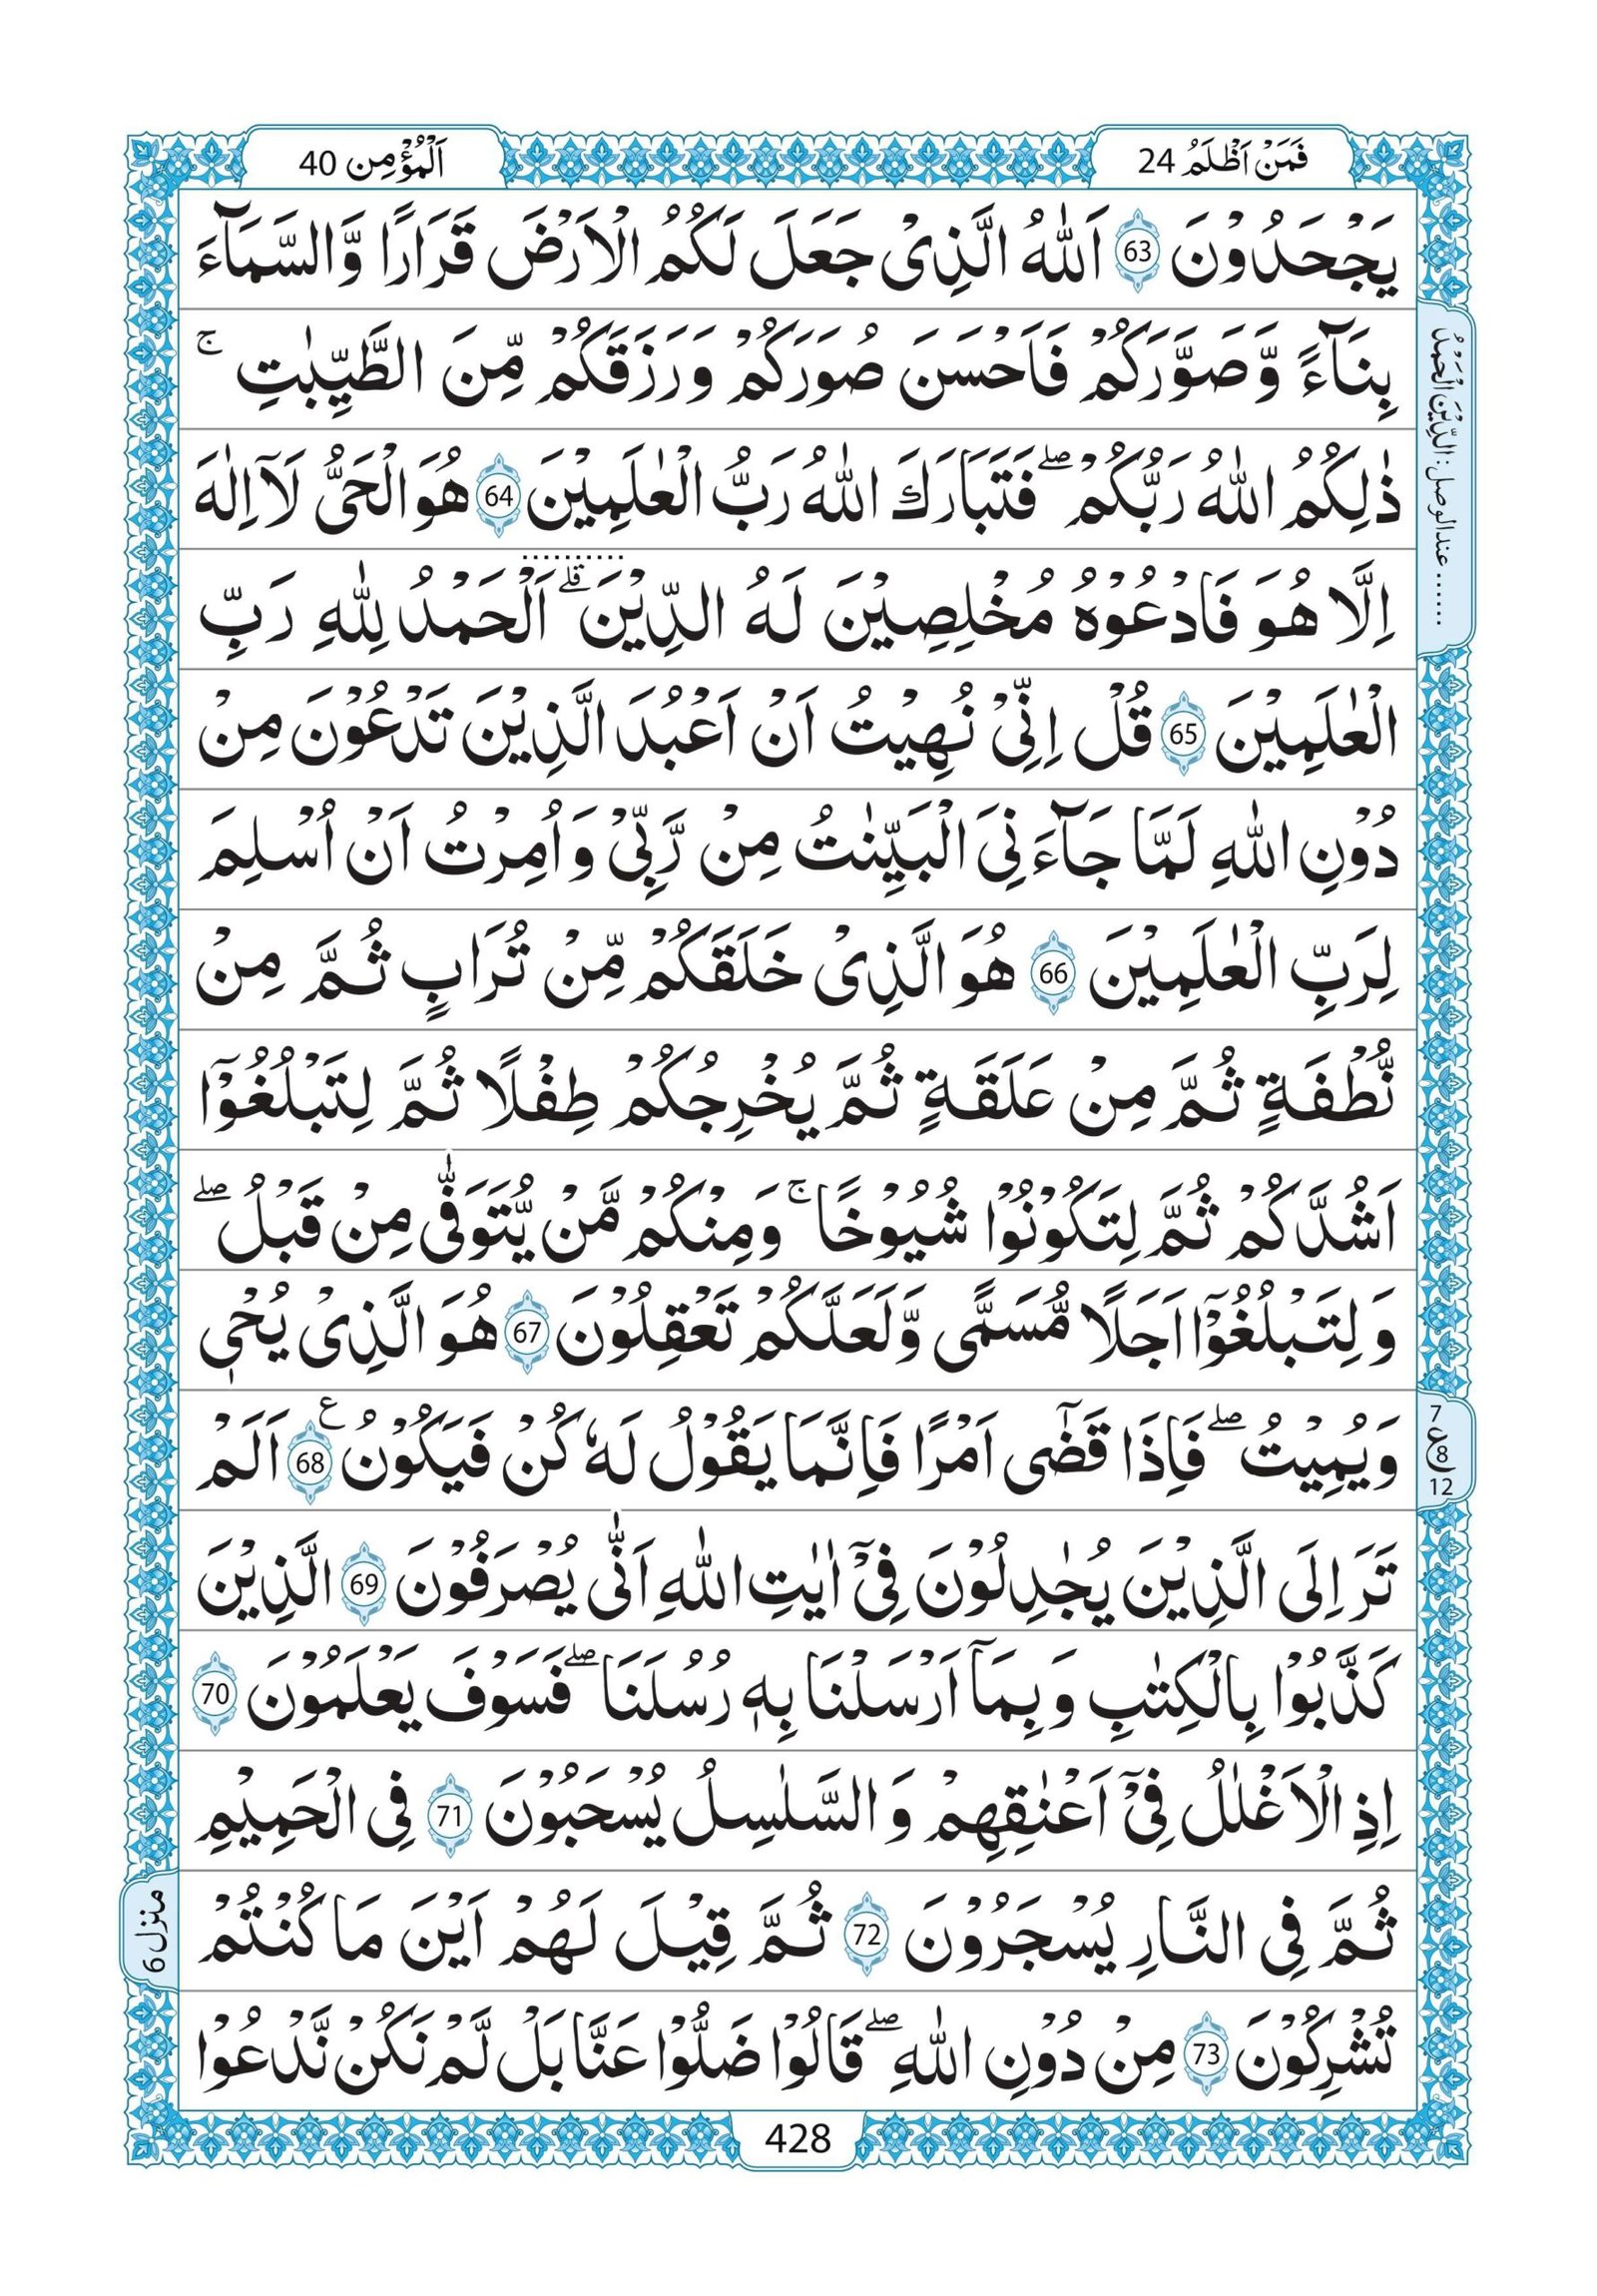 فَمَنْ اَظْلَمُ 24
اَلْمُؤْمِن 40
يَجْحَدُوْنَ 63 اَللّٰهُ الَّذِىْ جَعَلَ لَكُمُ الْاَرْضَ قَرَارًا وَّالسَّمَآءَ
بِنَآءً وَّصَوَّرَكُمْ فَاَحْسَنَ صُوَرَكُمْ وَرَزَقَكُمْ مِّنَ الطَّيِّبٰتِ ۚ
ذٰلِكُمُ اللّٰهُ رَبُّكُمْ ۖ فَتَبَارَكَ اللّٰهُ رَبُّ الْعٰلَمِيْنَ 64 هُوَ الْحَىُّ لَآ اِلٰهَ
اِلَّا هُوَ فَادْعُوْهُ مُخْلِصِيْنَ لَهُ الدِّيْنَ ۗ اَلْحَمْدُ لِلّٰهِ رَبِّ
الْعٰلَمِيْنَ 65 قُلْ اِنِّىْ نُهِيْتُ اَنْ اَعْبُدَ الَّذِيْنَ تَدْعُوْنَ مِنْ
دُوْنِ اللّٰهِ لَمَّا جَآءَنِىَ الْبَيِّنٰتُ مِنْ رَّبِّىْ وَاُمِرْتُ اَنْ اُسْلِمَ
لِرَبِّ الْعٰلَمِيْنَ 66 هُوَ الَّذِىْ خَلَقَكُمْ مِّنْ تُرَابٍ ثُمَّ مِنْ
نُّطْفَةٍ ثُمَّ مِنْ عَلَقَةٍ ثُمَّ يُخْرِجُكُمْ طِفْلًا ثُمَّ لِتَبْلُغُوْٓا
اَشُدَّكُمْ ثُمَّ لِتَكُوْنُوْا شُيُوْخًا ۚ وَمِنْكُمْ مَّنْ يُّتَوَفّٰى مِنْ قَبْلُ ۖ
وَلِتَبْلُغُوْٓا اَجَلًا مُّسَمًّى وَّلَعَلَّكُمْ تَعْقِلُوْنَ 67 هُوَ الَّذِىْ يُحْىٖ
وَيُمِيْتُ ۖ فَاِذَا قَضٰٓى اَمْرًا فَاِنَّمَا يَقُوْلُ لَهٗ كُنْ فَيَكُوْنُ ع 68 اَلَمْ
تَرَ اِلَى الَّذِيْنَ يُجٰدِلُوْنَ فِىْٓ اٰيٰتِ اللّٰهِ اَنّٰى يُصْرَفُوْنَ 69 الَّذِيْنَ
كَذَّبُوْا بِالْكِتٰبِ وَبِمَآ اَرْسَلْنَا بِهٖ رُسُلَنَا ۖ فَسَوْفَ يَعْلَمُوْنَ 70
اِذِ الْاَغْلٰلُ فِىْٓ اَعْنٰقِهِمْ وَ السَّلٰسِلُ يُسْحَبُوْنَ 71 فِى الْحَمِيْمِ
ثُمَّ فِى النَّارِ يُسْجَرُوْنَ 72 ثُمَّ قِيْلَ لَهُمْ اَيْنَ مَا كُنْتُمْ
تُشْرِكُوْنَ 73 مِنْ دُوْنِ اللّٰهِ ۖ قَالُوْا ضَلُّوْا عَنَّا بَلْ لَّمْ نَكُنْ نَّدْعُوْا
عند الوصل: الدِّيْنَ الْحَمْدُ
7
ع 8
12
منزل 6
428